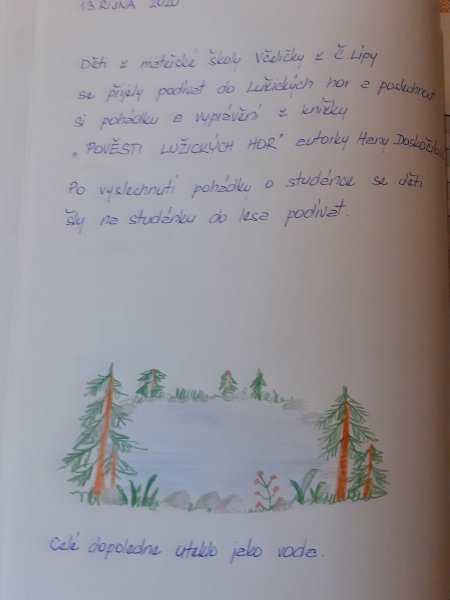 13 ŘÍJNA 2020
Děti z mateřské školy Včeličky z Č. Lípy
se přijely podívat do Lužických hor a poslechnout
si pohádku a vyprávění z knížky
„POVĚSTI LUŽICKÝCH HOR" autorky Hany Doskočilové
Po vyslechnutí pohádky o studánce se děti
šly na studánku do lesa podívat.
Celé dopoledne uteklo jako voda.